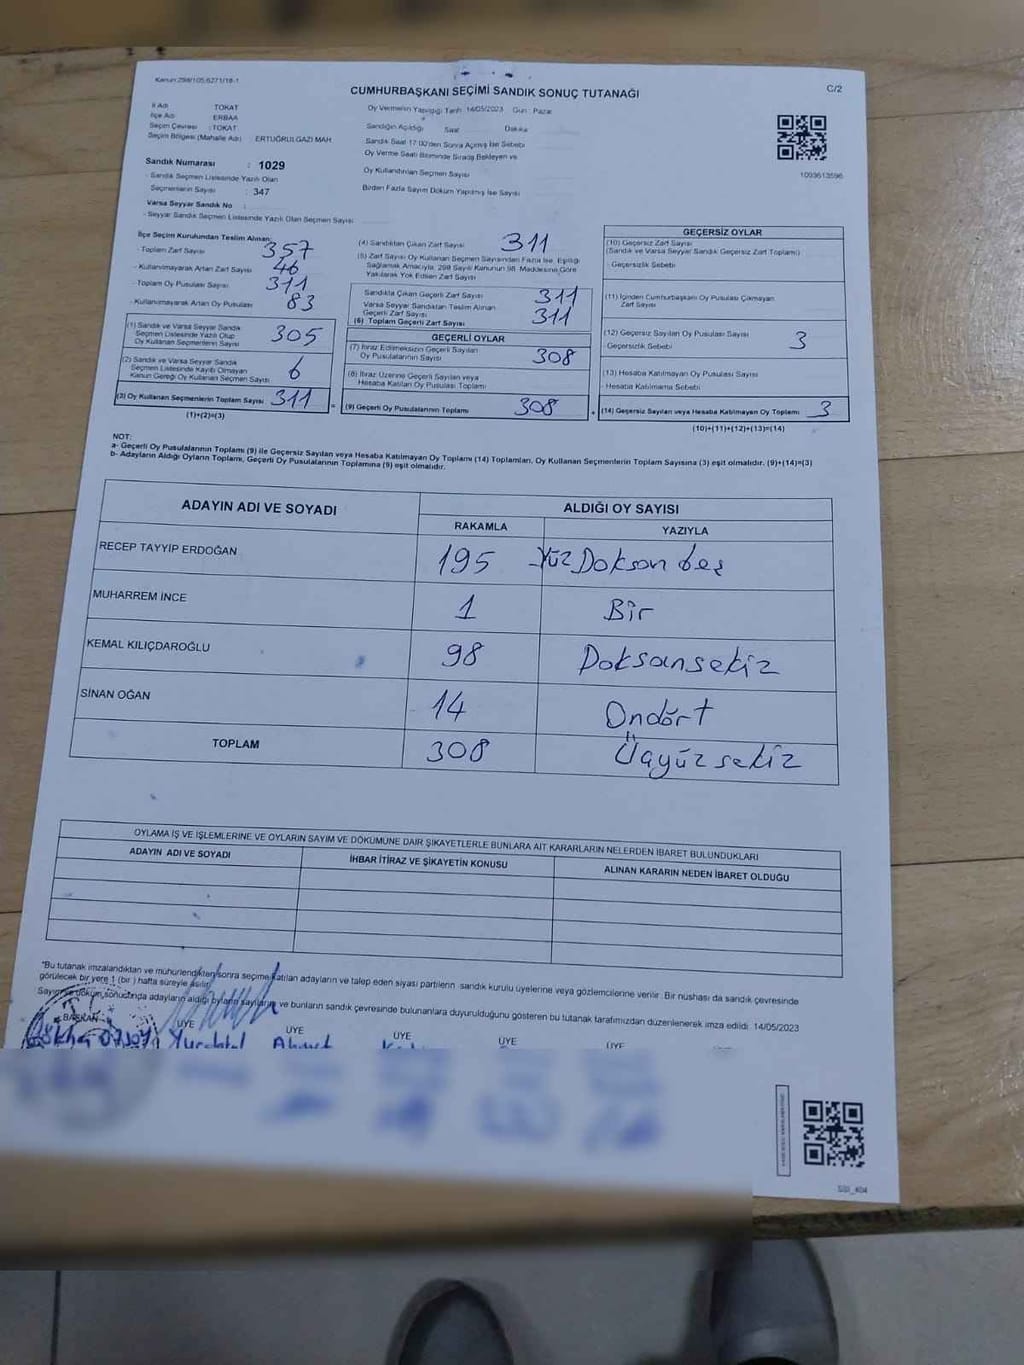 Kanun:298/105,6271/18-1
C/2
CUMHURBAŞKANI SEÇİMİ SANDIK SONUÇ TUTANAĞI
İl Adı : TOKAT
İlçe Adı : ERBAA
Seçim Çevresi : TOKAT
Seçim Bölgesi (Mahalle Adı) : ERTUĞRULGAZİ MAH
Oy Vermenin Yapıldığı Tarih: 14/05/2023 Gün : Pazar
Sandığın Açıldığı Saat Dakika
Sandık Saat 17:00'den Sonra Açılmış İse Sebebi
Oy Verme Saati Bitiminde Sırada Bekleyen ve
Oy Kullandırılan Seçmen Sayısı
Birden Fazla Sayım Döküm Yapılmış İse Sayısı
1093613596
Sandık Numarası : 1029
- Sandık Seçmen Listesinde Yazılı Olan
Seçmenlerin Sayısı : 347
Varsa Seyyar Sandık No :
- Seyyar Sandık Seçmen Listesinde Yazılı Olan Seçmen Sayısı
İlçe Seçim Kurulundan Teslim Alınan:
- Toplam Zarf Sayısı 357
- Kullanılmayarak Artan Zarf Sayısı 46
- Toplam Oy Pusulası Sayısı 311
- Kullanılmayarak Artan Oy Pusulası 83
(1) Sandık ve Varsa Seyyar Sandık
Seçmen Listesinde Yazılı Olup
Oy Kullanan Seçmenlerin Sayısı 305
(2) Sandık ve Varsa Seyyar Sandık
Seçmen Listesinde Kayıtlı Olmayan
Kanun Gereği Oy Kullanan Seçmen Sayısı 6
(3) Oy Kullanan Seçmenlerin Toplam Sayısı 311
(1)+(2)=(3)
(4) Sandıktan Çıkan Zarf Sayısı 311
(5) Zarf Sayısı Oy Kullanan Seçmen Sayısından Fazla İse, Eşitliği
Sağlamak Amacıyla, 298 Sayılı Kanunun 98. Maddesine Göre
Yakılarak Yok Edilen Zarf Sayısı
Sandıkta Çıkan Geçerli Zarf Sayısı 311
Varsa Seyyar Sandıktan Teslim Alınan
Geçerli Zarf Sayısı 311
(6) Toplam Geçerli Zarf Sayısı
GEÇERLİ OYLAR
(7) İtiraz Edilmeksizin Geçerli Sayılan
Oy Pusulalarının Sayısı 308
(8) İtiraz Üzerine Geçerli Sayılan veya
Hesaba Katılan Oy Pusulası Toplamı
(9) Geçerli Oy Pusulalarının Toplamı 308
GEÇERSİZ OYLAR
(10) Geçersiz Zarf Sayısı
(Sandık ve Varsa Seyyar Sandık Geçersiz Zarf Toplamı)
- Geçersizlik Sebebi
(11) İçinden Cumhurbaşkanı Oy Pusulası Çıkmayan
Zarf Sayısı
(12) Geçersiz Sayılan Oy Pusulası Sayısı 3
- Geçersizlik Sebebi
(13) Hesaba Katılmayan Oy Pusulası Sayısı
- Hesaba Katılmama Sebebi
(14) Geçersiz Sayılan veya Hesaba Katılmayan Oy Toplamı 3
(10)+(11)+(12)+(13)=(14)
NOT:
a- Geçerli Oy Pusulalarının Toplamı (9) ile Geçersiz Sayılan veya Hesaba Katılmayan Oy Toplamı (14) Toplamları, Oy Kullanan Seçmenlerin Toplam Sayısına (3) eşit olmalıdır. (9)+(14)=(3)
b- Adayların Aldığı Oyların Toplamı, Geçerli Oy Pusulalarının Toplamına (9) eşit olmalıdır.
ADAYIN ADI VE SOYADI ALDIĞI OY SAYISI
RAKAMLA YAZIYLA
RECEP TAYYİP ERDOĞAN 195 Yüz Doksan beş
MUHARREM İNCE 1 Bir
KEMAL KILIÇDAROĞLU 98 Doksansekiz
SİNAN OĞAN 14 Ondört
TOPLAM 308 Üçyüz sekiz
OYLAMA İŞ VE İŞLEMLERİNE VE OYLARIN SAYIM VE DÖKÜMÜNE DAİR ŞİKAYETLERLE BUNLARA AİT KARARLARIN NELERDEN İBARET BULUNDUKLARI
ADAYIN ADI VE SOYADI İHBAR İTİRAZ VE ŞİKAYETİN KONUSU ALINAN KARARIN NEDEN İBARET OLDUĞU
*Bu tutanak imzalandıktan ve mühürlendikten sonra seçime katılan adayların ve talep eden siyasi partilerin sandık kurulu üyelerine veya gözlemcilerine verilir. Bir nüshası da sandık çevresinde
görülecek bir yere 1 (bir) hafta süreyle asılır.
Sayım ve döküm sonucunda adayların aldığı oyların sayılarını ve bunların sandık çevresinde bulunanlara duyurulduğunu gösteren bu tutanak tarafımızdan düzenlenerek imza edildi. 14/05/2023
BAŞKAN ÜYE ÜYE ÜYE ÜYE ÜYE
Ahmet